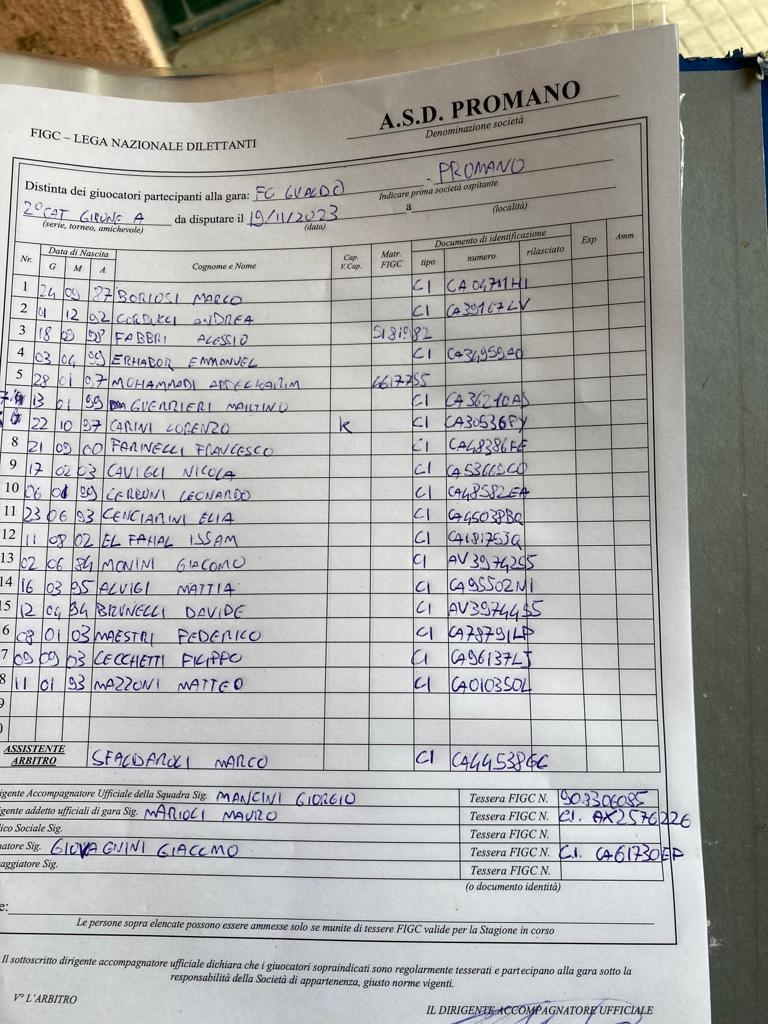 A.S.D. PROMANO
FIGC – LEGA NAZIONALE DILETTANTI
Denominazione società
Distinta dei giuocatori partecipanti alla gara: FC GUALDO - PROMANO
Indicare prima società ospitante
2° CAT GIRONE A da disputare il 19/11/2023 a
(serie, torneo, amichevole) (data) (località)
Nr. Data di Nascita Cognome e Nome Cap. V.Cap. Matr. FIGC Documento di identificazione Esp Amm
G M A tipo numero rilasciato
1 24 09 87 BORIOSI MARCO CI
2 12 02 ANDREA CI CA39167LV
3 18 09 98 FABBRI ALESSIO
4 03 04 99 ERHABOR EMMANUEL CI
5 28 01 07 MOHAMMADI 6617755
13 01 99 GUERRIERI MARTINO CI CA36210AD
22 10 97 CARINI LORENZO K CI CA30536PY
8 21 09 00 FARINELLI FRANCESCO CI CA48386FE
9 17 02 03 CAVIGLI NICOLA CI
10 06 99 CERBONI LEONARDO CI CA48582EA
11 23 06 93 CENCIARINI ELIA CI CA45038BQ
12 11 08 02 EL FAHAL ISSAM CI
13 02 06 84 MONINI GIACOMO CI AV3974255
14 16 03 95 ALUIGI MATTIA CI CA95502NI
15 12 04 94 BRUNELLI DAVIDE CI AV3974455
6 08 01 03 MAESTRI FEDERICO CI CA78791LP
7 09 09 03 CECCHETTI FILIPPO CI CA96137LJ
8 11 01 93 MAZZONI MATTEO CI CA01035OL
9
ASSISTENTE ARBITRO MARCO CI CA44538GC
igente Accompagnatore Ufficiale della Squadra Sig. MANCINI GIORGIO Tessera FIGC N. 903306085
igente addetto ufficiali di gara Sig. MARIOLI MAURO Tessera FIGC N. C.I. AX2576226
ico Sociale Sig. Tessera FIGC N.
natore Sig. GIOVAGNINI GIACOMO Tessera FIGC N. C.I. CA61730EP
aggiatore Sig. Tessera FIGC N.
(o documento identità)
e:
Le persone sopra elencate possono essere ammesse solo se munite di tessere FIGC valide per la Stagione in corso
Il sottoscritto dirigente accompagnatore ufficiale dichiara che i giuocatori sopraindicati sono regolarmente tesserati e partecipano alla gara sotto la
responsabilità della Società di appartenenza, giusto norme vigenti.
V° L'ARBITRO
IL DIRIGENTE ACCOMPAGNATORE UFFICIALE